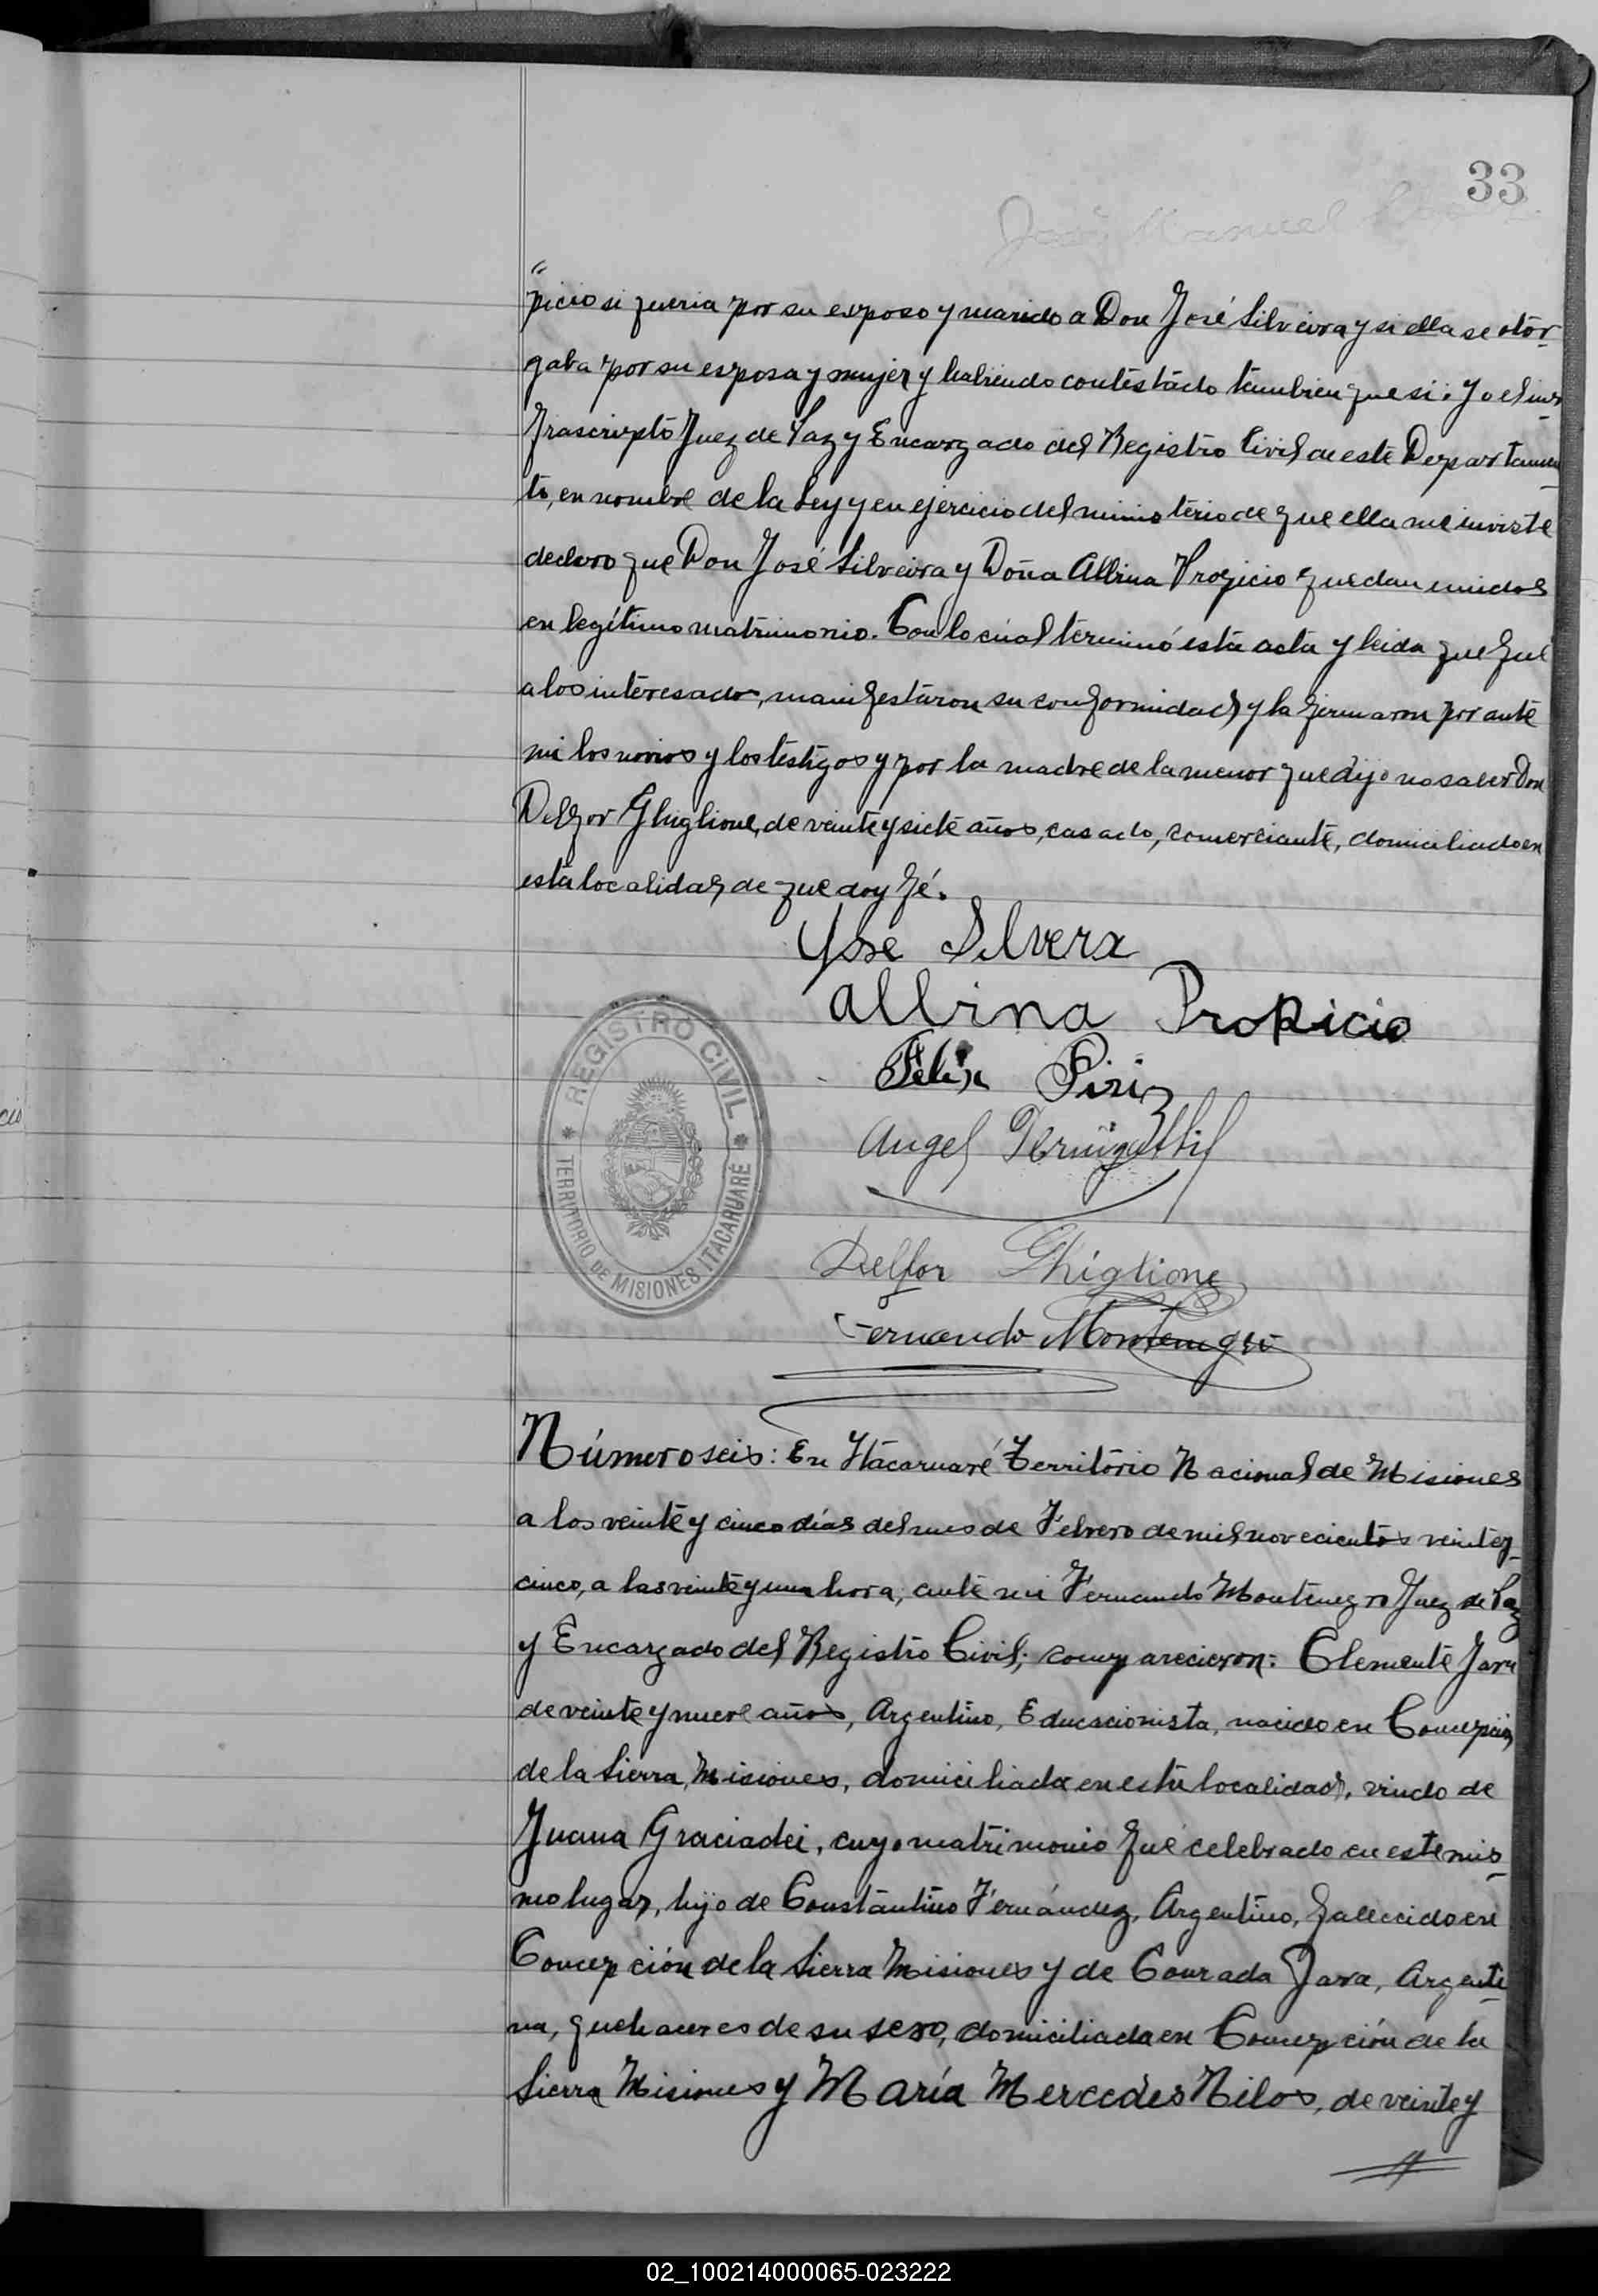 33
José Manuel
"
picio si queria por su esposo y marido a Don José Silveira y si ella se otor-
gaba por su esposa y mujer y habiendo contestado tambien que si: Yo el ins-
frascripto Juez de Paz y Encargado del Registro Civil de este Departamen-
to, en nombre de la Ley y en ejercicio del ministerio de que ella me inviste
declaro que Don José Silveira y Doña Albina Propicio quedan unidos
en legítimo matrimonio. Con lo cúal terminó esta acta y leida que fué
a los interesados, manifestaron su conformidad y la firmaron por ante
mi los novios y los testigos y por la madre de la menor que dijo no saber Don
Delfor Ghiglione, de veinte y siete años, casado, comerciante, domiciliado en
esta localidad, de que doy fé.
Jose Silvera
Albina Propicio
Felix Piriz
Angel
Delfor Ghiglione
Fernando Montenegro
REGISTRO CIVIL
TERRITORIO DE MISIONES ITACARUARÉ
Número seis: En Itacaruaré Território Nacional de Misiones
a los veinte y cinco días del mes de Febrero de mil novecientos veinte y
cinco, a las veinte y una hora, ante mi Fernando Montenegro Juez de Paz
y Encargado del Registro Civil; comparecieron: Clemente Jara
de veinte y nueve años, Argentino, Educacionista, nacido en Concepción
de la Sierra, Misiones, domiciliada en esta localidad, viudo de
Juana Graciadei, cuyo matrimonio fué celebrado en este mis-
mo lugar, hijo de Constantino Fernández, Argentino, fallecido en
Concepción de la Sierra Misiones y de Conrada Jara, Argenti-
na, quehaceres de su sexo, domiciliada en Concepción de la
Sierra Misiones y María Mercedes Nilos, de veinte y
02_100214000065-023222